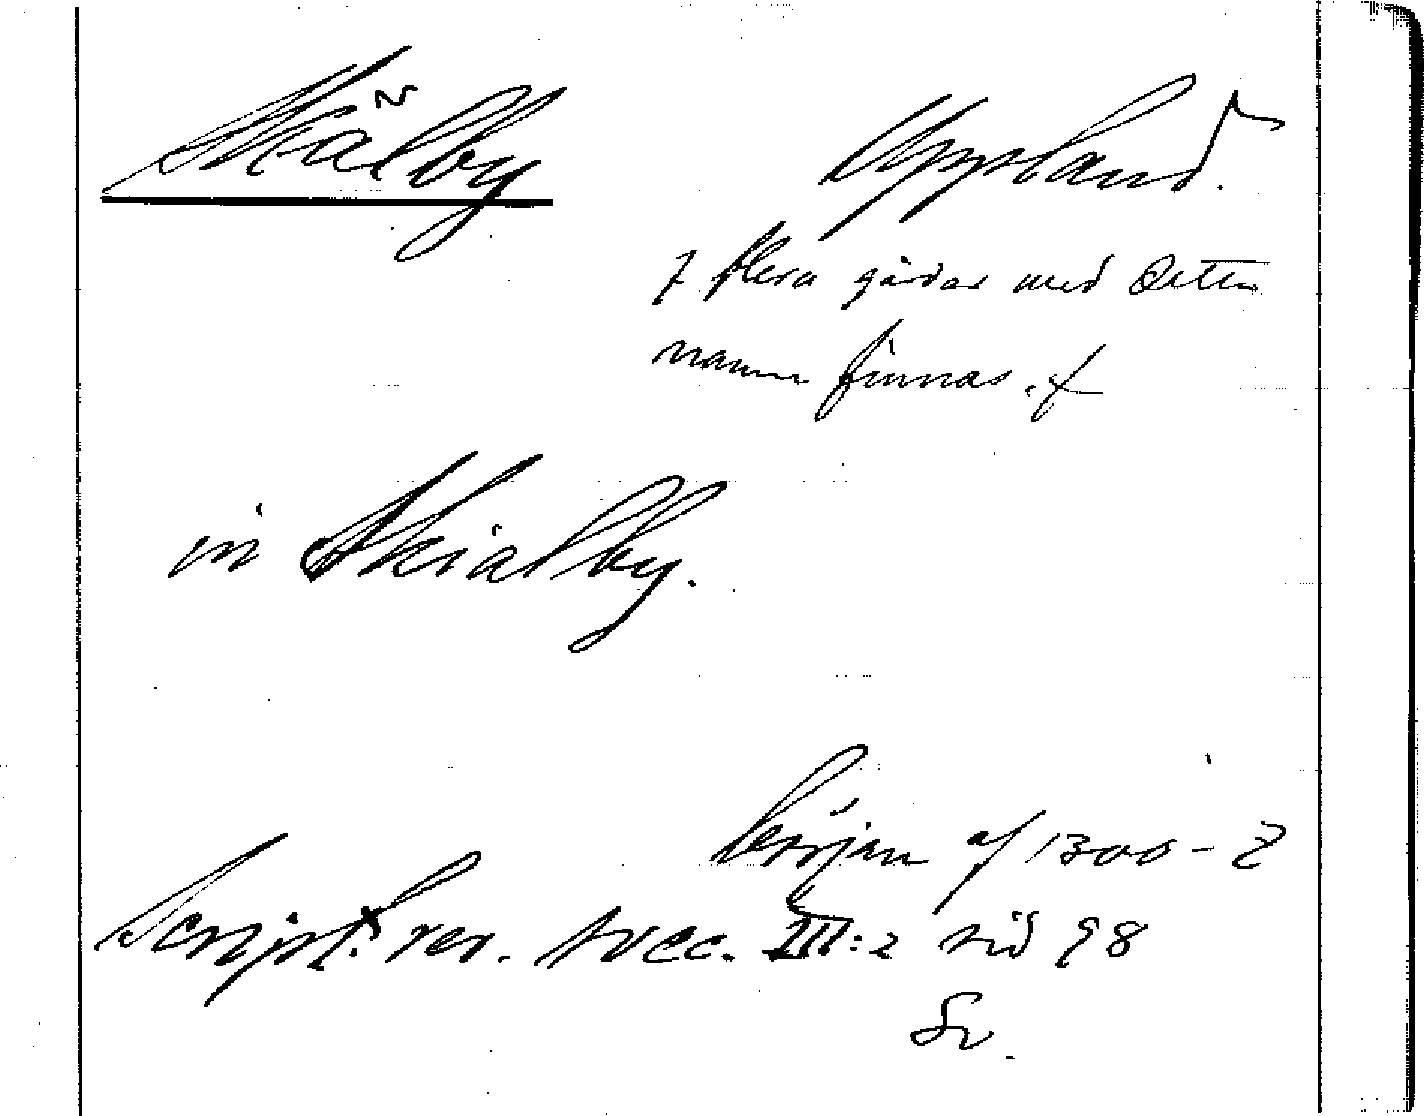 Skälby Uppland.
flera gårdar med detta
namn finnas.
in Skialby.
början af 1300-t
Script. rer. svec. III:2 sid 98